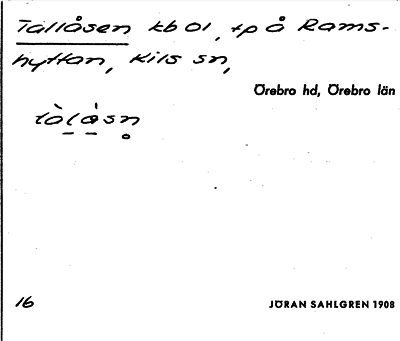 Tallåsen kb 01, tp å Rams-
hyttan, Kils sn,
Örebro hd, Örebro län
tàlå̀sn̥
16
JÖRAN SAHLGREN 1908